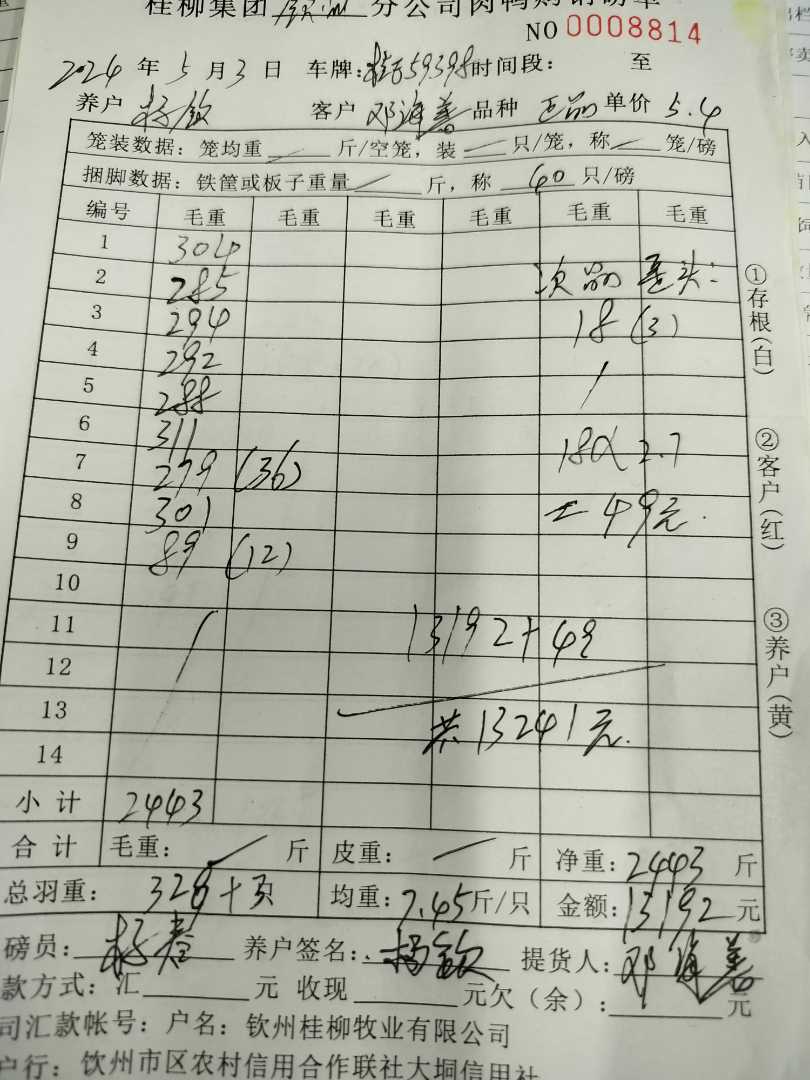 桂柳集团 钦州 分公司肉鸭购销磅单
NO 0008814
2024 年 5 月 3 日 车牌:桂 59398 时间段: 至
养户 杨钦 客户 邓海善 品种 正品 单价 5.4
笼装数据:笼均重 斤/空笼,装 只/笼,称 笼/磅
捆脚数据:铁筐或板子重量 斤,称 40 只/磅
编号 毛重 毛重 毛重 毛重 毛重 毛重
1 304
2 285 次品
3 294 18 (3)
4 292
5 288
6 311
7 279 (36) 18× 2.7
8 301 = 49元.
9 89 (12)
10
11 13192+49
12
13 共13241元.
14
小计 2443
合计 毛重: 斤 皮重: 斤 净重:2443 斤
总羽重: 328+3只 均重:7.45斤/只 金额:13192元
磅员: 养户签名: 杨钦 提货人: 邓海善
款方式:汇 元 收现 元欠(余): 元
司汇款帐号:户名:钦州桂柳牧业有限公司
户行:钦州市区农村信用合作联社大垌信用社
①存根(白)
②客户(红)
③养户(黄)